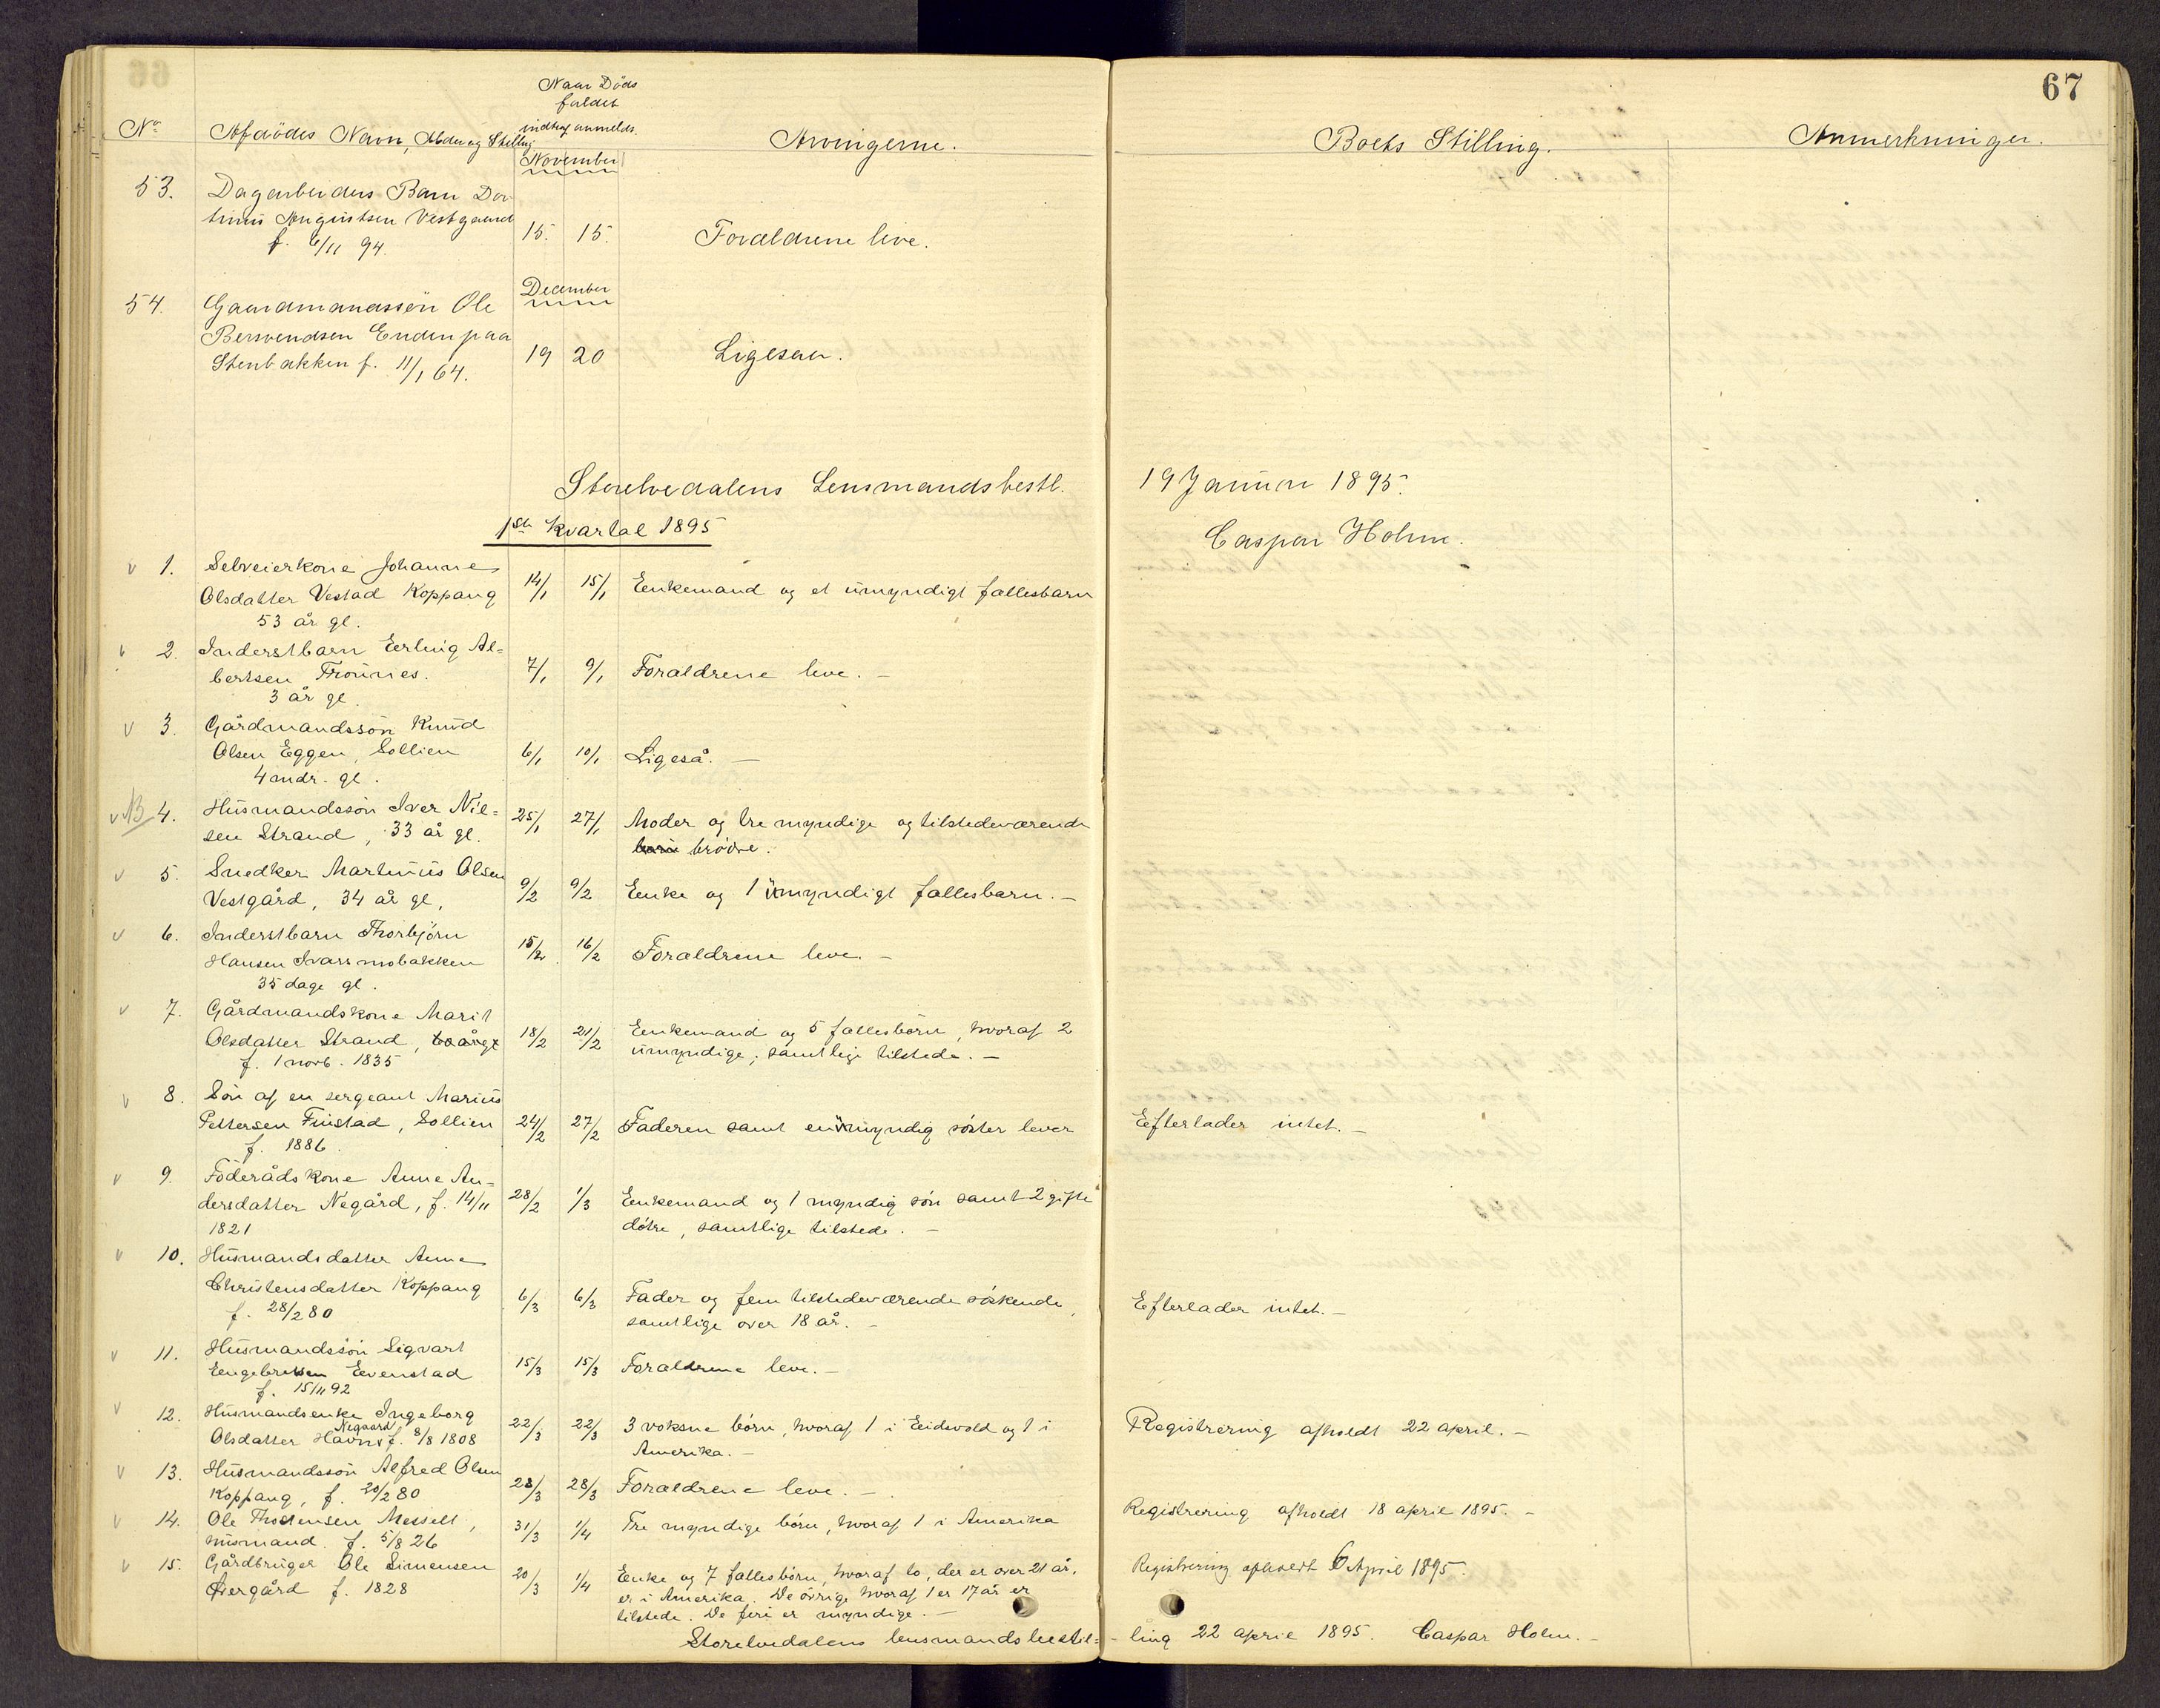 67
Naar Döds
faldet
indtraf anmeldt.
No Afdödes Navn, Alder og Stilling Arvingerne. Boets Stilling. Anmerkninger.
November
53. Dagarbeiders Barn
Augustsen Vestgaard 15. 15. Forældrene leve.
f. 6/11 94.
December
54. Gaardmandssön Ole
Bersvendsen Enden paa
Stenbakken f. 11/1 64. 19 20 Ligesaa.
Storelvedalens Lensmandsbestl. 19 Januar 1895.
Caspar Holm.
1ste Kvartal 1895
1. Selveierkone Johanne
Olsdatter Vestad Koppang 14/1 15/1 Enkemand og et umyndigt fællesbarn
53 år gl.
2. Inderstbarn Erling Al=
bertsen Trönnes. 7/1 9/1 Forældrene leve. -
3 år gl.
3. Gårdmandssön Knud
Olsen Eggen, Sollien 6/1 10/1 Ligeså. -
4 mdr. gl.
NB 4. Husmandssön Iver Nil=
sen Strand, 33 år gl. 25/1 27/1 Moder og tre myndige og tilstedeværende
brödre.
5. Snedker Martinus Olsen
Vestgård, 34 år gl, 9/2 9/2 Enke og 1 umyndigt fællesbarn. -
6. Inderstbarn Thorbjörn
Hansen Ivarsmobakken 15/2 16/2 Forældrene leve. -
35 dage gl.
7. Gårdmandskone Marit
Olsdatter Strand, 18/2 21/2 Enkemand og 5 fællesbörn, hvoraf 2
f. 1 novb. 1835 umyndige, samtlige tilstede. -
8. Sön af en sergeant Marius
Pettersen Finstad, Sollien 24/2 27/2 Faderen samt en umyndig söster lever Efterlader intet. -
f. 1886.
9. Föderådskone Anne An=
dersdatter Negård, f. 14/11 28/2 1/3 Enkemand og 1 myndig sön samt 2 gifte
1821 dötre, samtlige tilstede. -
10. Husmandsdatter Anne
Christensdatter Koppang 6/3 6/3 Fader og fem tilstedeværende söskende, Efterlader intet. -
f. 28/2 80 samtlige over 18 år. -
11. Husmandssön Sigvart
Engebretsen Evenstad 15/3 15/3 Forældrene leve. -
f. 15/11 92
12. Husmandsenke Ingeborg
Negaard
Olsdatter Havn f. 8/8 1808 22/3 22/3 3 voksne börn, hvoraf 1 i Eidsvold og 1 i Registrering afholdt 22 april. -
Amerika. -
13. Husmandssön Alfred Olsen
Koppang, f. 20/2 80 28/3 28/3 Forældrene leve. -
14. Ole Thostensen Messelt, 31/3 1/4 Tre myndige börn, hvoraf 1 i Amerika Registrering afholdt 18 april 1895. -
husmand. f. 5/8 26
15. Gårdbruger Ole Simensen
Övergård f. 1828 20/3 1/4 Enke og 7 fællesbörn, hvoraf to, der er over 21 år, Registrering afholdt 6 April 1895.
er i Amerika. De övrige hvoraf 1 er 17 år er
tilstede. De fem er myndige. -
Storelvedalens lensmandsbestil=-ling 22 april 1895. Caspar Holm. -